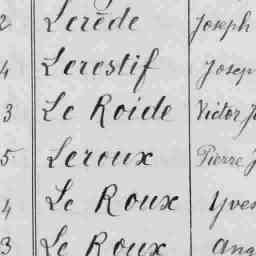 2 Lerède Joseph
4 Lerestif Josep
3 Le Roide Victor J
5 Leroux Pierre J
4 Le Roux Yves
3 Le Roux Ang